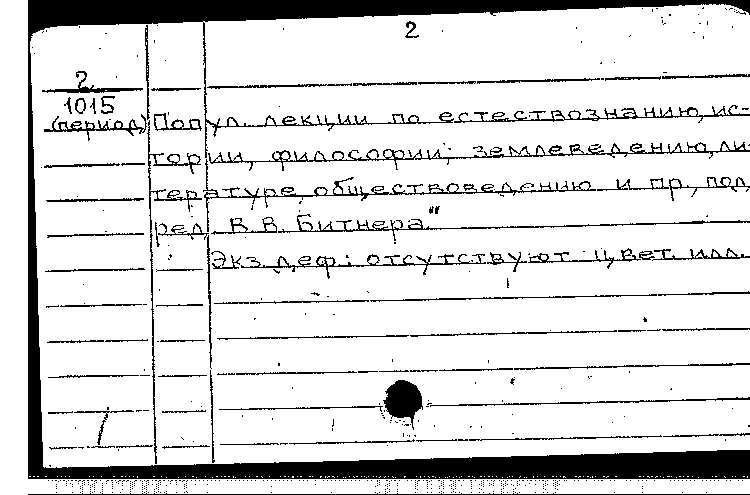 2
2
1015
(период) Попул. лекции по естествознанию, ис-
тории, философии; землеведению, ли-
тературе, обществоведению и пр., под
ред. В. В. Битнера."
Экз. деф.: отсутствуют цвет. илл.